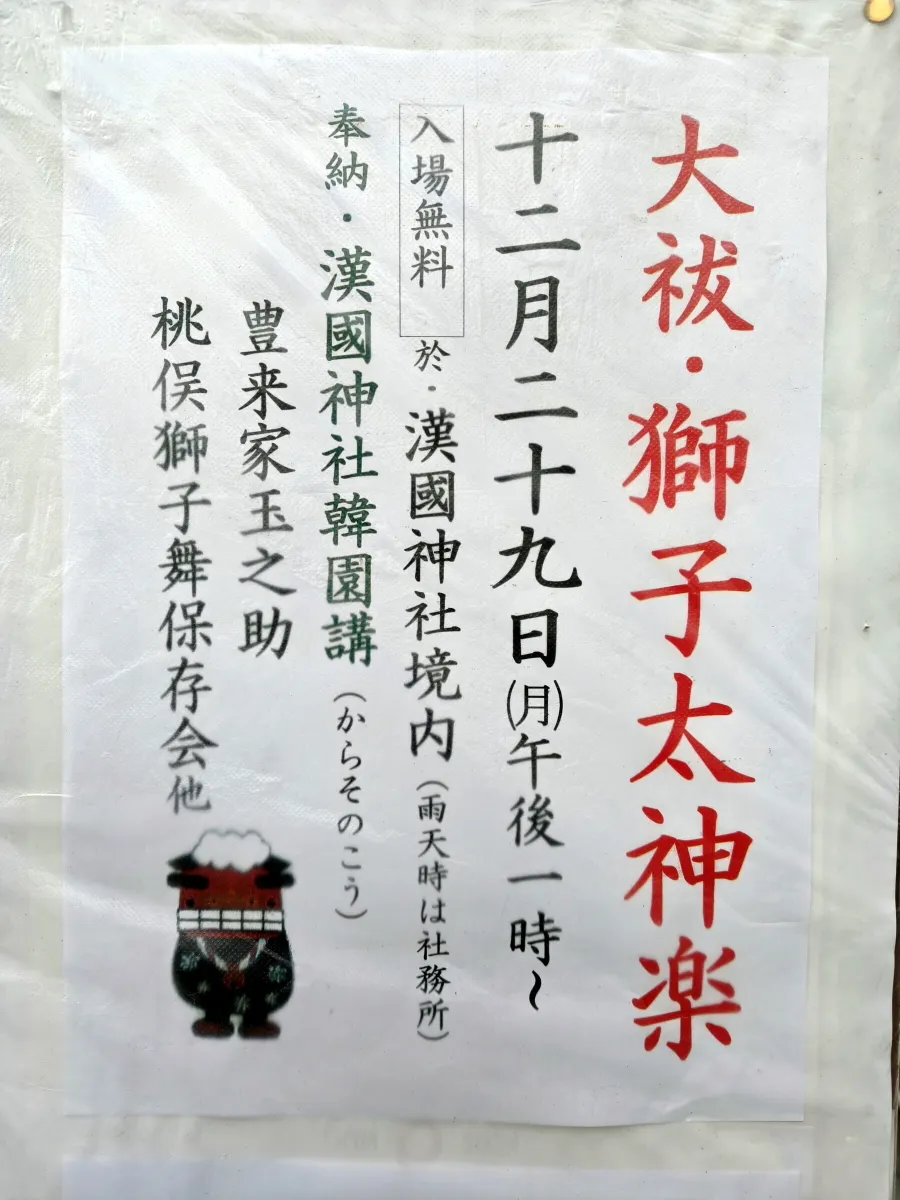 大祓・獅子太神楽
十二月二十九日(月)午後一時~
入場無料 於・漢國神社境内(雨天時は社務所)
奉納・漢國神社韓園講(からそのこう)
豊来家玉之助
桃俣獅子舞保存会他